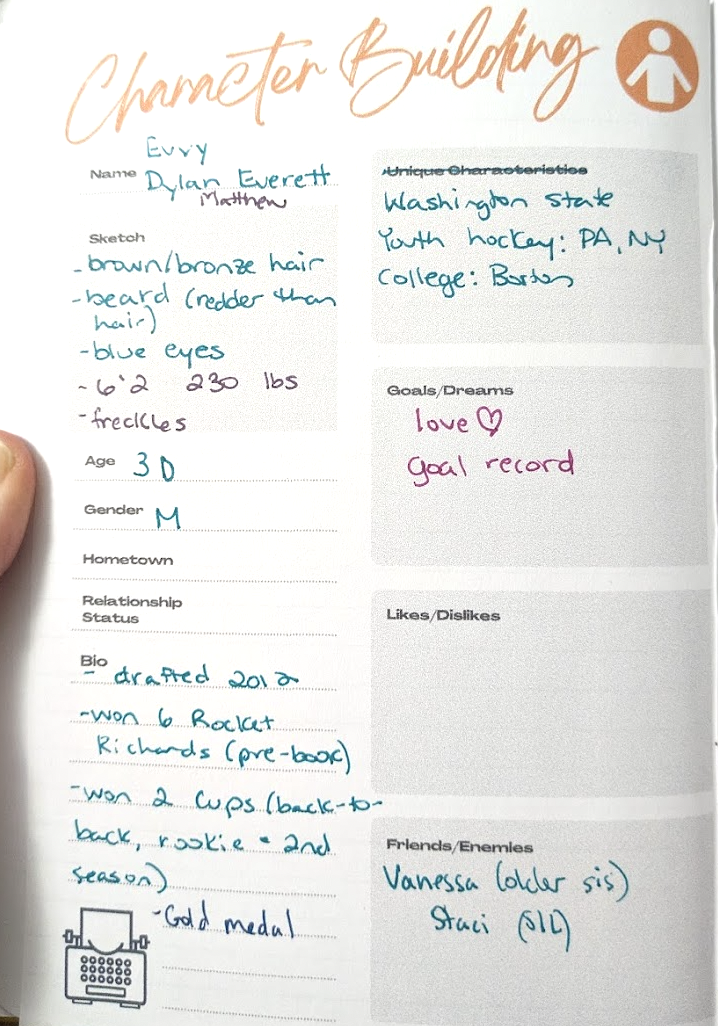 Character Building
Evvy
Name Dylan Everett
Matthew
Sketch
- brown/bronze hair
- beard (redder than
hair)
- blue eyes
- 6'2 230 lbs
- freckles
Age 30
Gender M
Hometown
Relationship
Status
Bio
- drafted 2012
- won 6 Rocket
Richards (pre-book)
- won 2 Cups (back-to-
back, rookie + 2nd
season)
- Gold medal
Unique Characteristics
Washington State
Youth hockey: PA, NY
College: Boston
Goals/Dreams
love ♡
goal record
Likes/Dislikes
Friends/Enemies
Vanessa (older sis)
Staci (SIL)